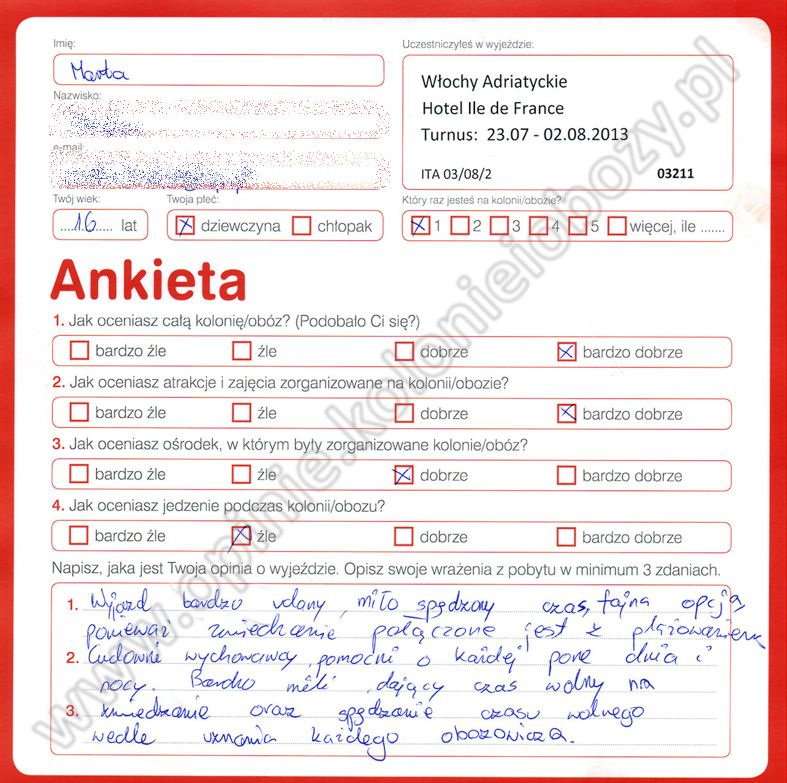 Imię:
Marta
Nazwisko:
e-mail:
Twój wiek:
16 lat
Twoja płeć:
dziewczyna chłopak
Uczestniczyłeś w wyjeździe:
Włochy Adriatyckie
Hotel Ile de France
Turnus: 23.07 - 02.08.2013
ITA 03/08/2 03211
Który raz jesteś na kolonii/obozie?
1 2 3 4 5 więcej, ile .......
Ankieta
1. Jak oceniasz całą kolonię/obóz? (Podobało Ci się?)
bardzo źle źle dobrze bardzo dobrze
2. Jak oceniasz atrakcje i zajęcia zorganizowane na kolonii/obozie?
bardzo źle źle dobrze bardzo dobrze
3. Jak oceniasz ośrodek, w którym były zorganizowane kolonie/obóz?
bardzo źle źle dobrze bardzo dobrze
4. Jak oceniasz jedzenie podczas kolonii/obozu?
bardzo źle źle dobrze bardzo dobrze
Napisz, jaka jest Twoja opinia o wyjeździe. Opisz swoje wrażenia z pobytu w minimum 3 zdaniach.
1. Wyjazd bardzo udany, miło spędzony czas, fajna opcja,
ponieważ zwiedzanie połączone jest z plażowaniem
2. Cudowni wychowawcy, pomocni o każdej porze dnia i
nocy. Bardzo mili, dający czas wolny na
3. zwiedzanie oraz spędzanie czasu wolnego
wedle uznania każdego obozowicza.
www.opinie.kolonieiobozy.pl